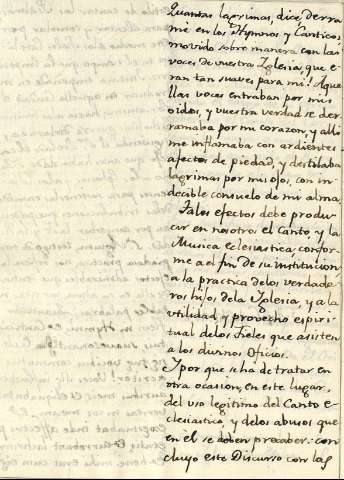 Quantas lagrimas, dice, derra
mè en los Hymnos y Canticos
movido sobre manera con las
voces de vuestra Iglesia, que e-
ran tan suaves para mi! Aque
llas voces entraban por mis
oidos, y vuestra verdad se der
ramaba por mi corazon, y allí
me inflamaba con ardientes
afectos de piedad, y destilaba
lagrimas por mis ojos, con in
decible consuelo de mi alma.
Tales efectos debe produ-
cir en nosotros el Canto y la
Musica Eclesiastica, confor-
me a el fin de su institucion
a la practica de los verdade
ros hijos de la Iglesia, y a la
utilidad y provecho espiri
tual de los Fieles que asisten
a los divinos Oficios.
Y por que se ha de tratar en
otra ocasion, en este lugar,
del uso legitimo del Canto e-
clesiastico, y de los abusos que
en el se deben precaber: con
cluyo este Discurso con las